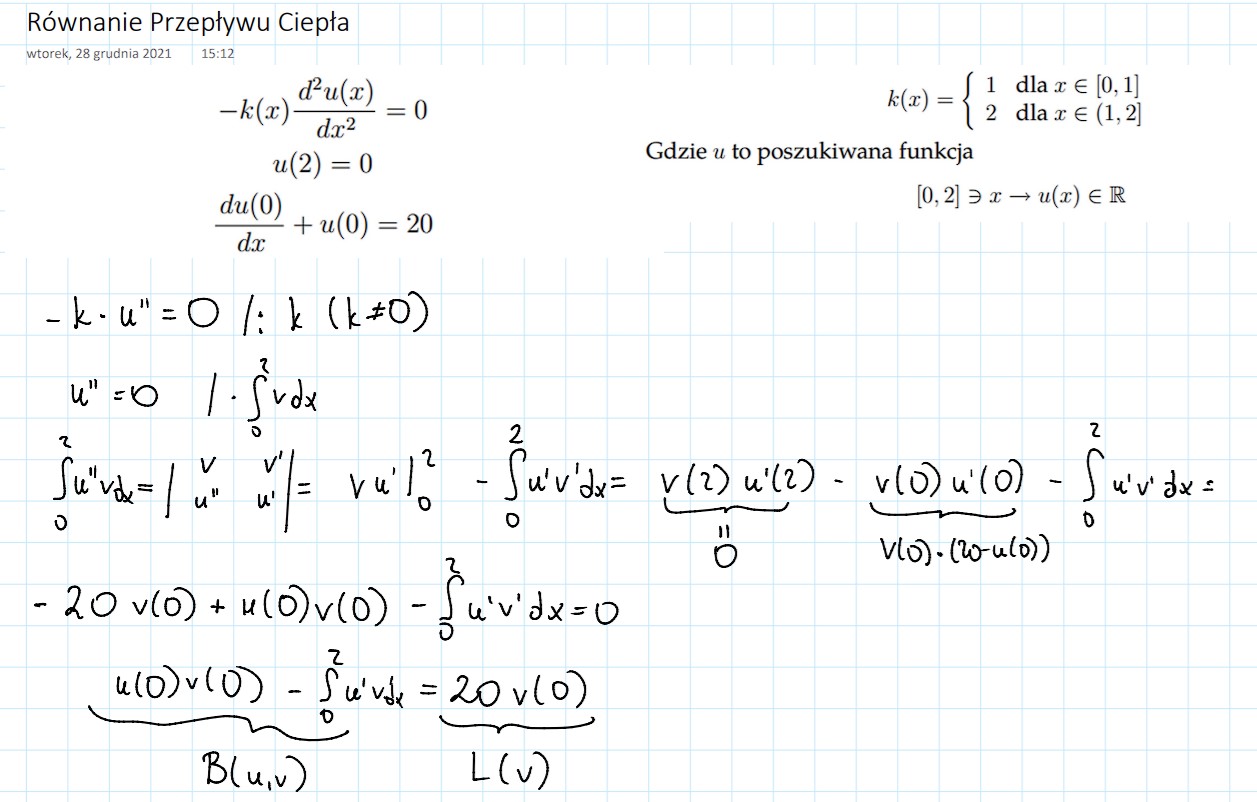 Równanie Przepływu Ciepła
wtorek, 28 grudnia 2021 15:12
-k(x) d²u(x)/dx² = 0
u(2) = 0
du(0)/dx + u(0) = 20
k(x) = { 1 dla x ∈ [0, 1]
2 dla x ∈ (1, 2]
Gdzie u to poszukiwana funkcja
[0, 2] ∋ x → u(x) ∈ ℝ
-k·u'' = 0 /: k (k≠0)
u'' = 0 /· ∫₀² v dx
∫₀² u''v dx = | v v' u'' u' | = v u' |₀² - ∫₀² u'v' dx = v(2) u'(2) - v(0) u'(0) - ∫₀² u'v' dx =
= 0 v(0)·(20-u(0))
- 20 v(0) + u(0)v(0) - ∫₀² u'v' dx = 0
u(0)v(0) - ∫₀² u'v dx = 20 v(0)
B(u,v) L(v)